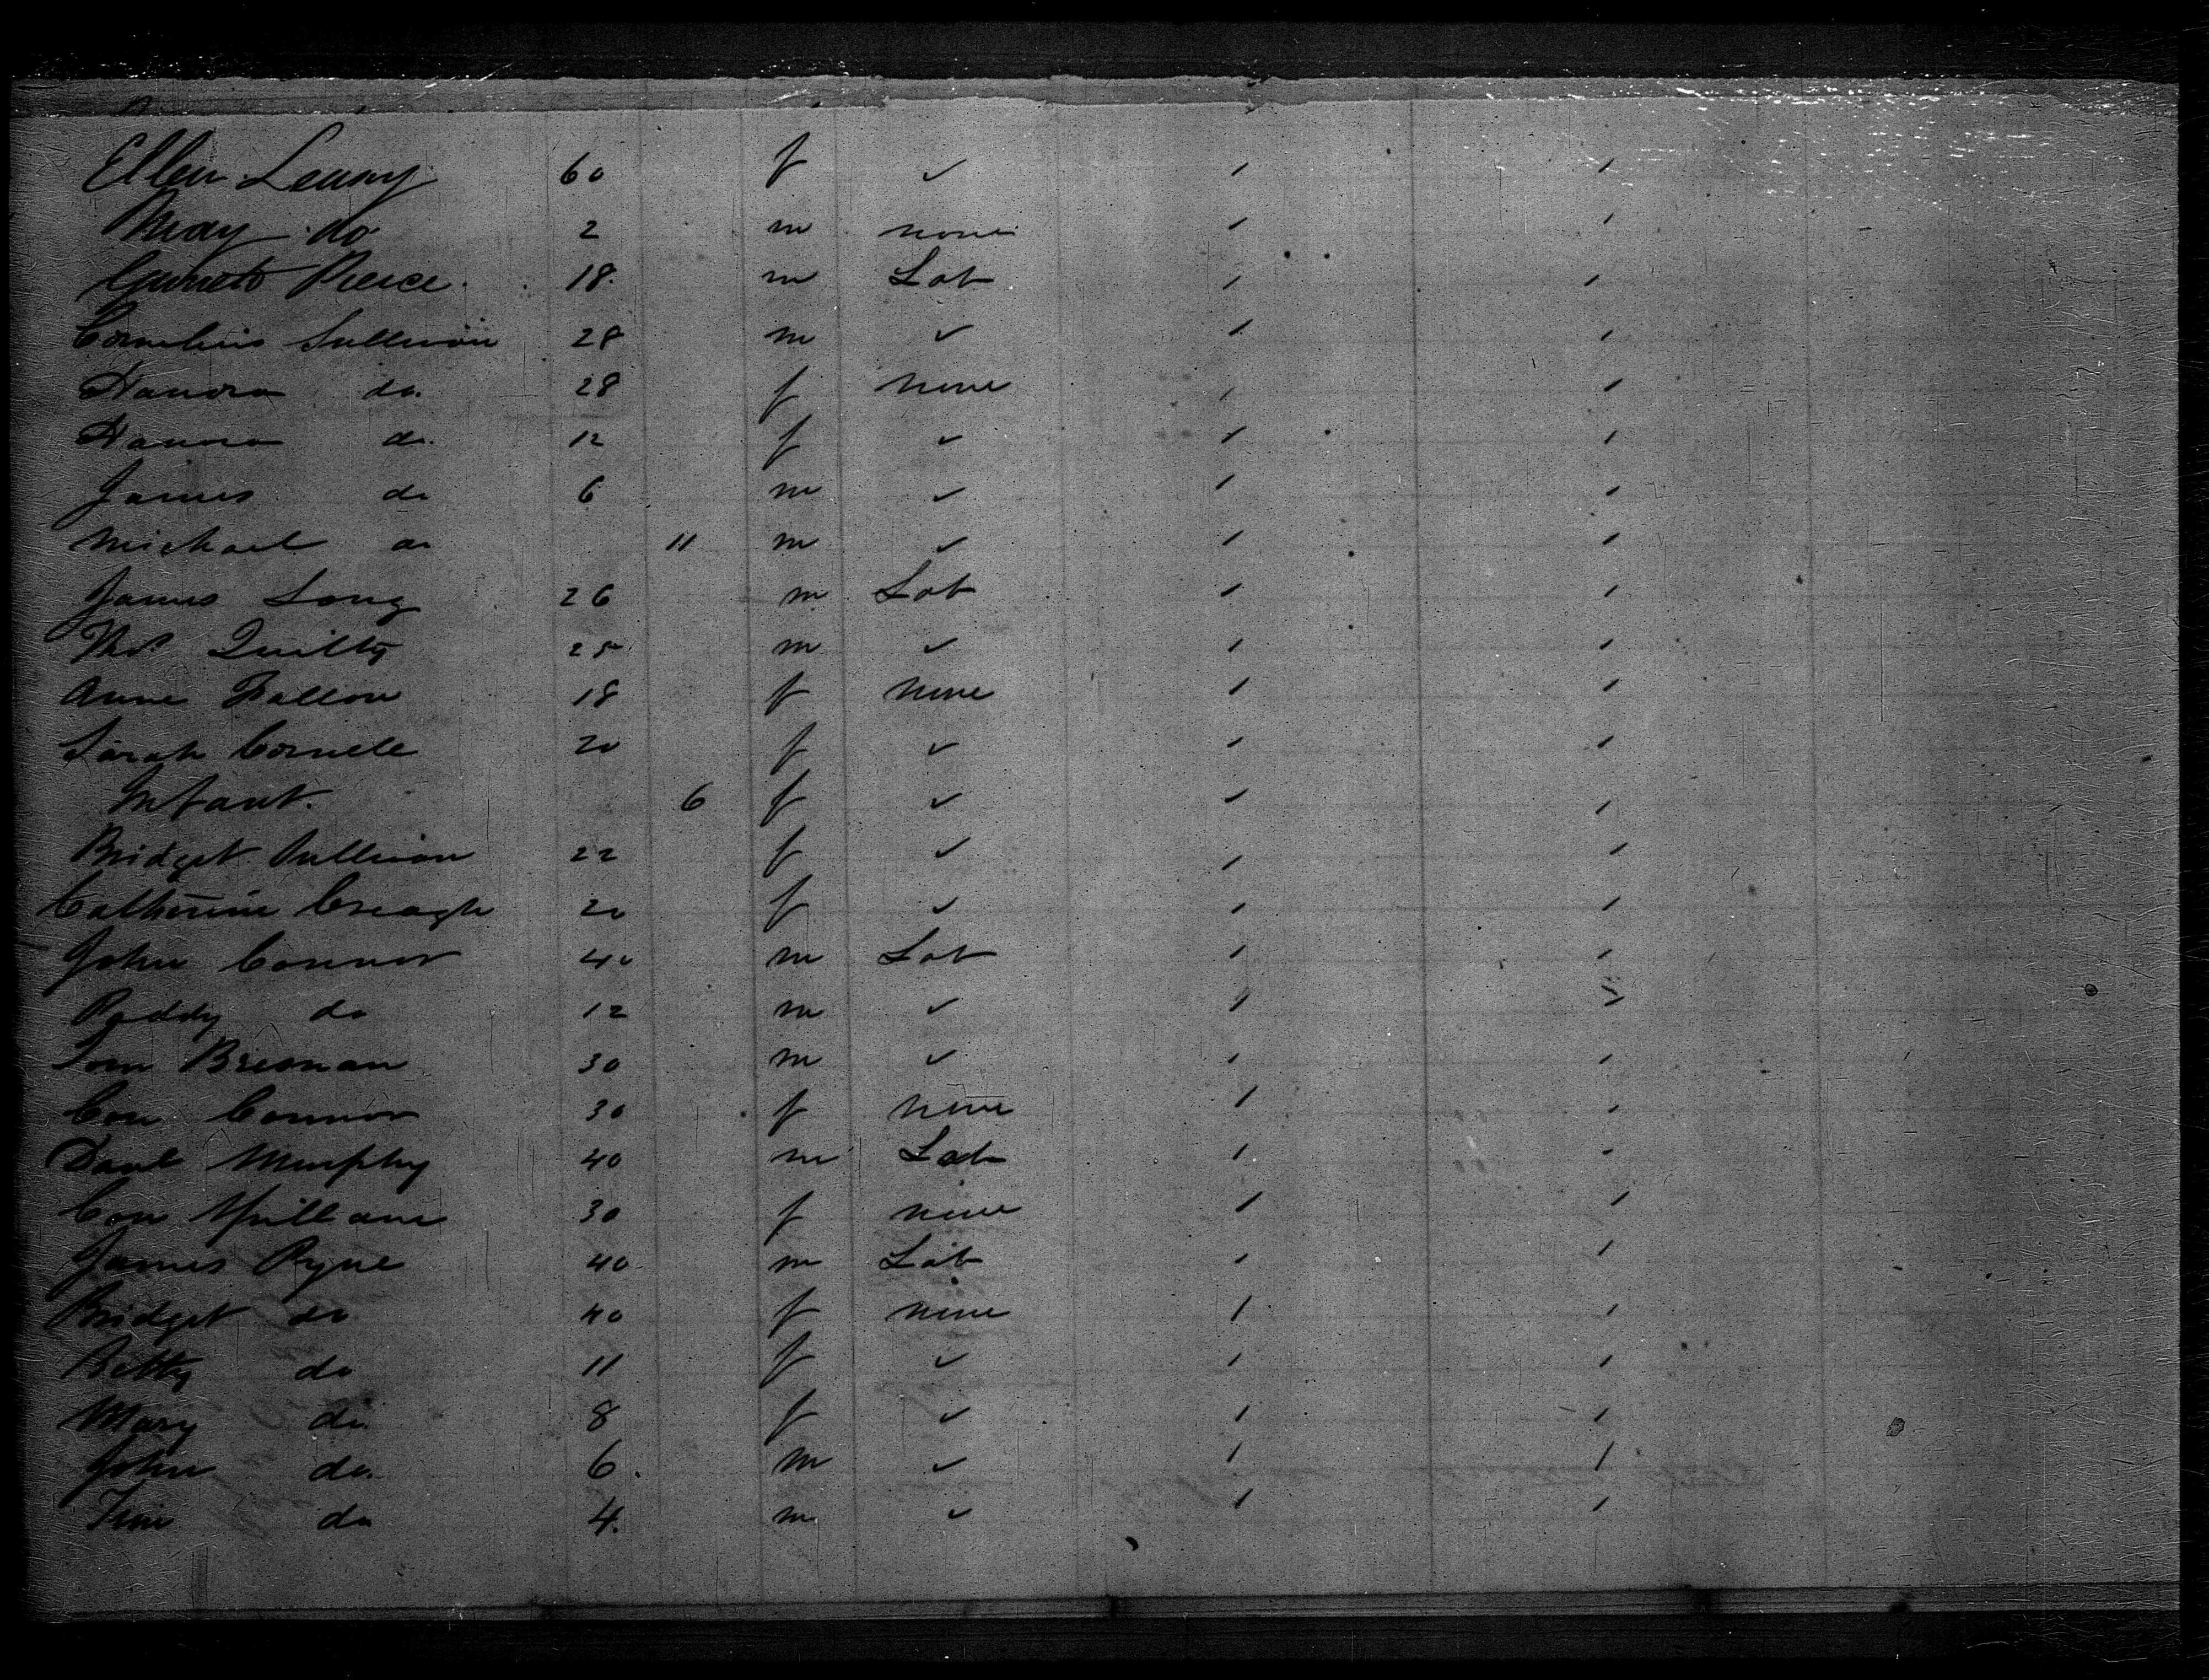 Ellen Leuny 60 f ✓ / /
May do 2 m none / /
Garrett Pierce 18 m Lab / /
Cornelius Sullivan 28 m ✓ / /
Hanora do. 28 f none / /
Hanora do. 12 f ✓ / /
James do 6 m ✓ / /
Michael do 11 m ✓ / /
James Long 26 m Lab / /
Thos Quilty 25 m ✓ / /
Anne Fallon 18 f none / /
Sarah Cornele 20 f ✓ / /
Infant. 6 f ✓ / /
Bridget Sullivan 22 f ✓ / /
Catherine Creagh 20 f ✓ / /
John Connor 40 m Lab / /
Paddy do 12 m ✓ / /
Tom Bresnan 30 m ✓ / /
Con Connor 30 f none / /
Danl Murphy 40 m Lab / /
Con Spillane 30 f none / /
James Pyne 40 m Lab / /
Bridget do 40 f none / /
Betty do 11 f ✓ / /
Mary do 8 f ✓ / /
John do. 6. m ✓ / /
Tim do 4. m ✓ / /